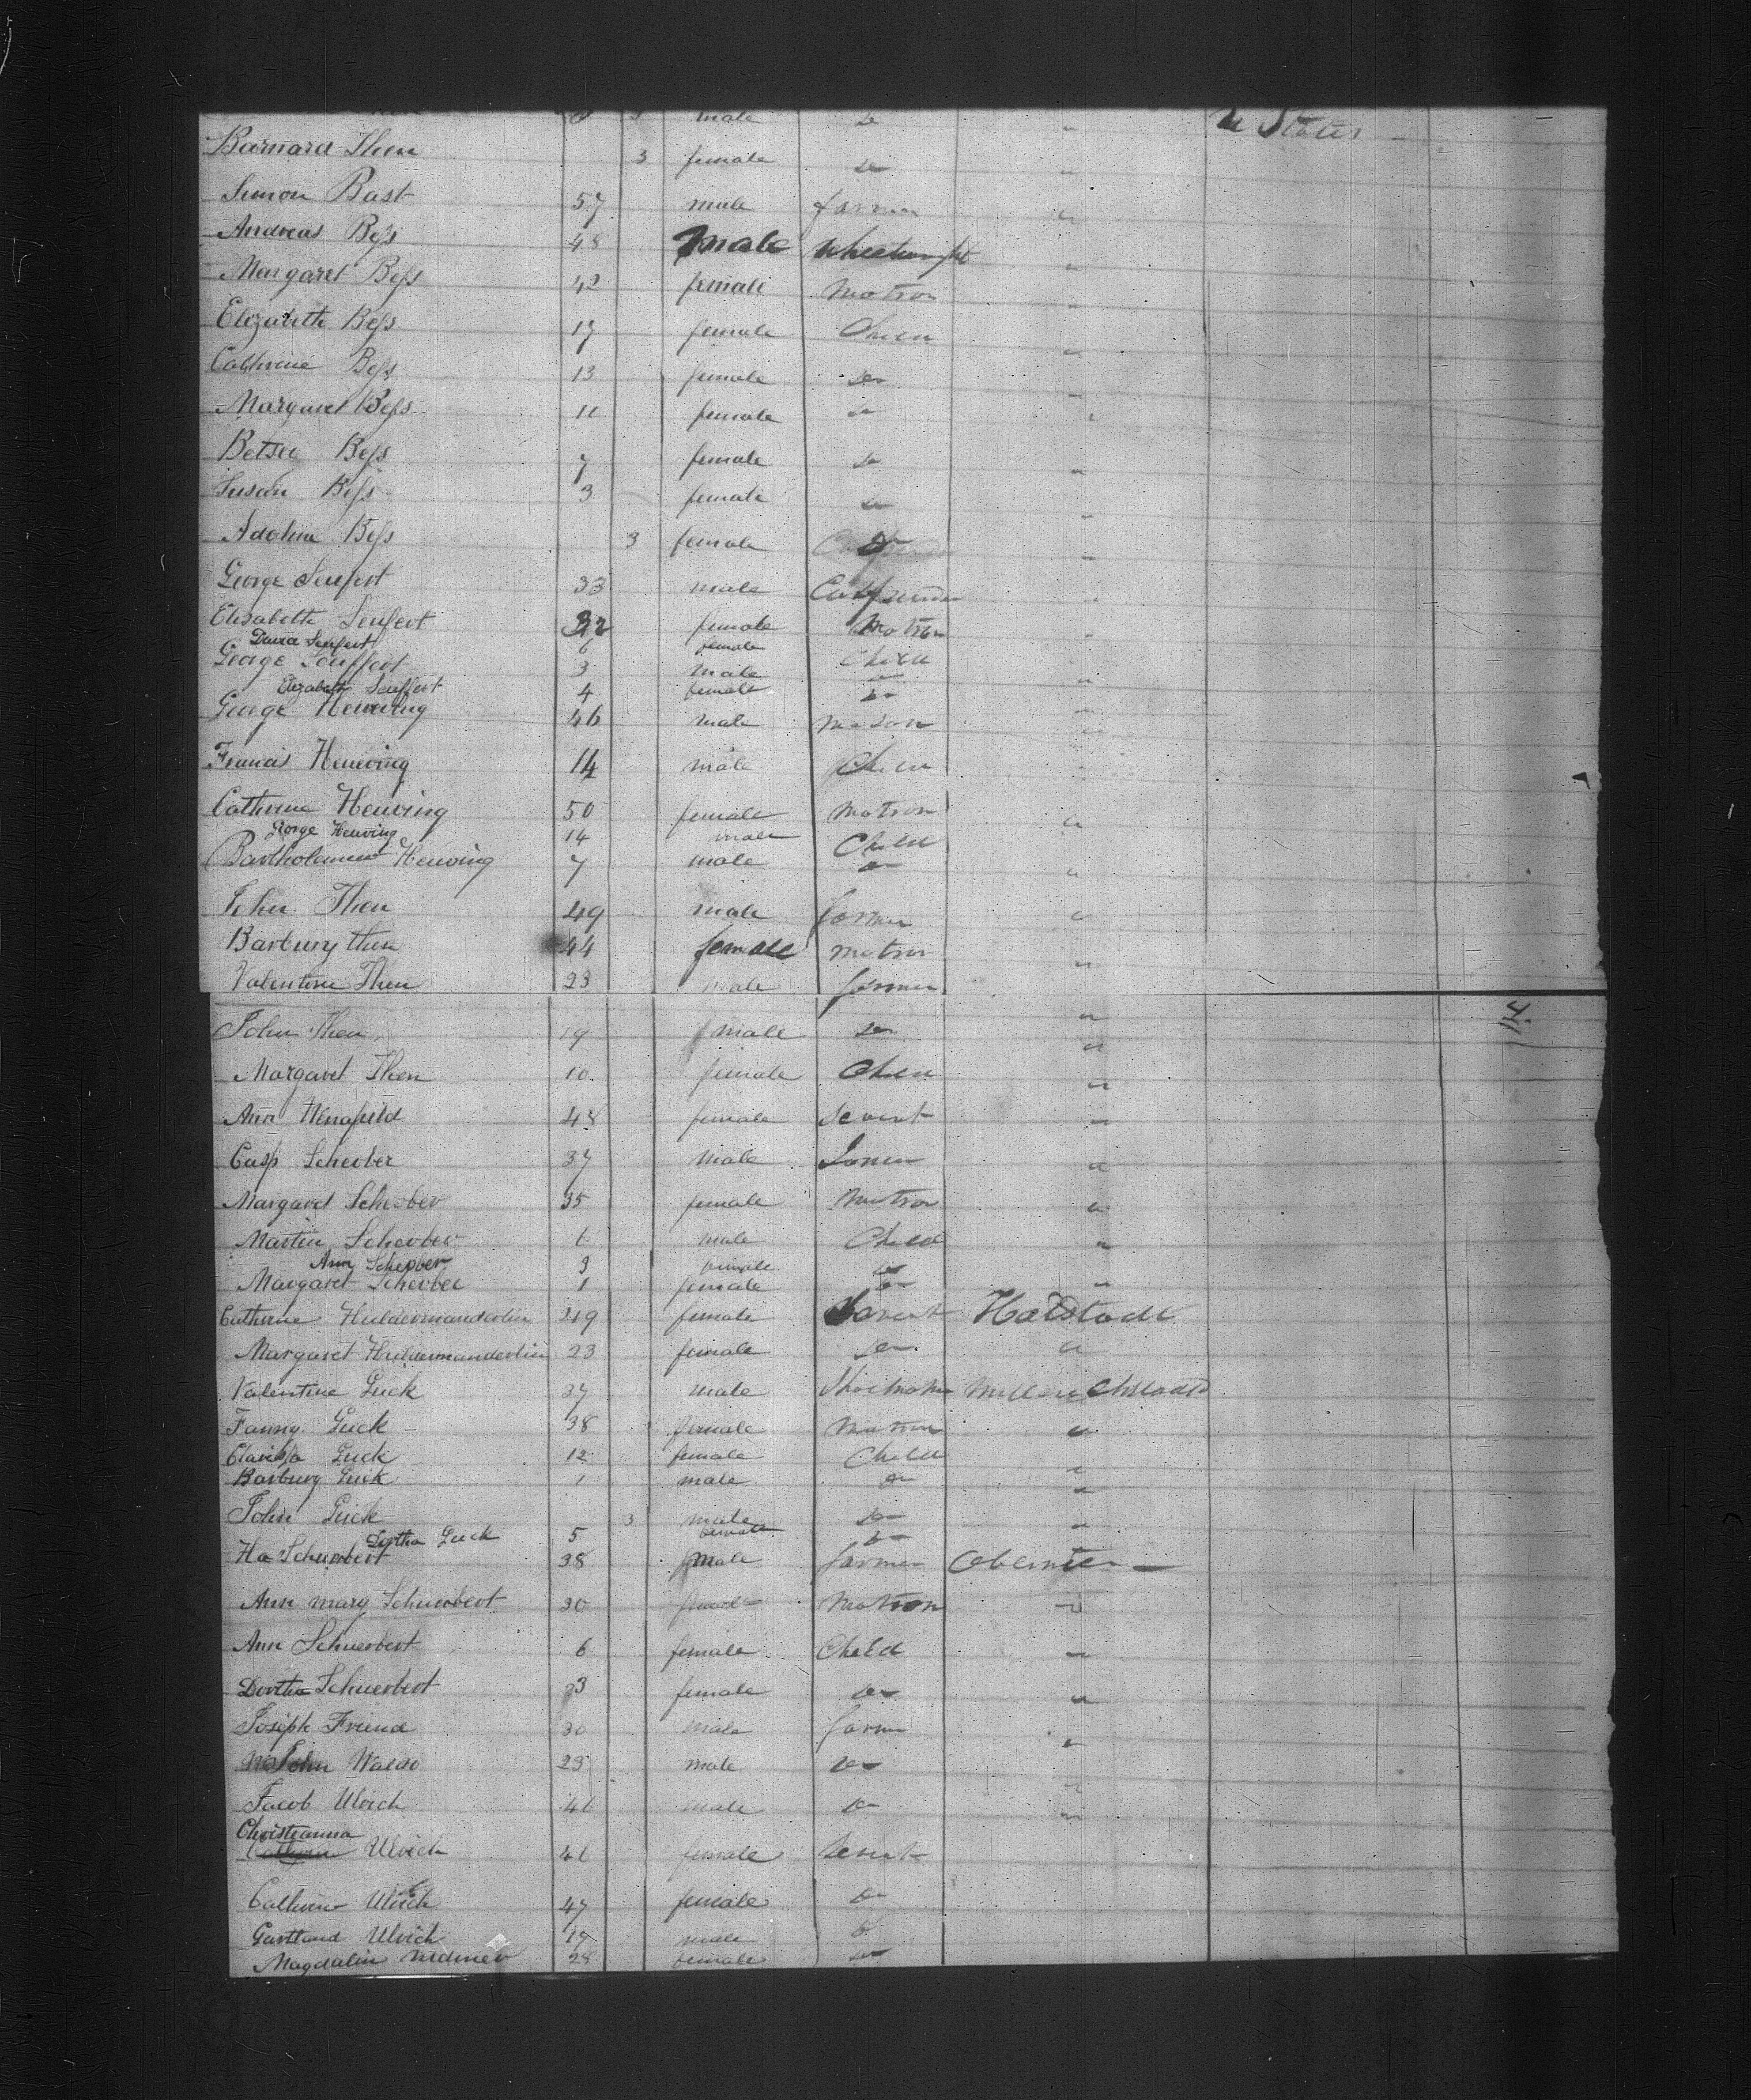 male do " U States
Barnard Then 3 female do "
Simon Bast 57 male farmer "
Andreas Beſs 48 male wheelwright
Margaret Beſs 42 female Matron "
Elizabeth Beſs 17 female Child "
Cathrine Beſs 13 female do "
Margaret Beſs 11 female do "
Betsey Beſs 7 female do "
Susan Beſs 3 female do "
Adolina Beſs 3 female do "
George Seufert 33 male "
Elisabeth Seufert 32 female Matron "
Seufert 6 female Child
George Seuffert 3 male do "
Elizabeth Seuffert 4 female do "
George Heuving 46 male mason "
Francis Heuving 14 male Child "
Cathrine Heuving 50 female Matron "
George Heuving 14 male Child
Bartholomew Heuving 7 male do "
John Then 49 male farmer "
Barbury then 44 female matron "
Valentine Then 23 male farmer
John Then 19 male do "
14
Margaret Then 10 female Child "
Ann 48 female Servent "
Casp Scherber 37 male "
Margaret Scherber 35 female Matron "
Martin Scherber 6 male Child "
Ann Scherber 3 female do
Margaret Scherber 1 female do "
Catherine Huldermanderlin 49 female Servent
Margaret Huldermunderlin 23 female do "
Valentine Guck 37 male Shoemaker
Fanny Guck 38 female Matron "
Clarisſa Guck 12 female Child "
Barbury Guck 1 male do "
John Guck 3 male do "
Dortha Guck 5 female do
Ha Schuerbert 38 male farmer
Ann mary Schuerbert 30 female Matron "
Ann Schuerbert 6 female Child "
Dortha Schuerbert 3 female do "
Joseph Friend 30 male farmer "
John Waldo 25 male do "
Jacob Ulrich 46 male do "
Christianna
Ulrich 46 female Servent
Catherine Ulrich 47 female do
Gartland Ulrich 17 male do
Magdalin 28 female do